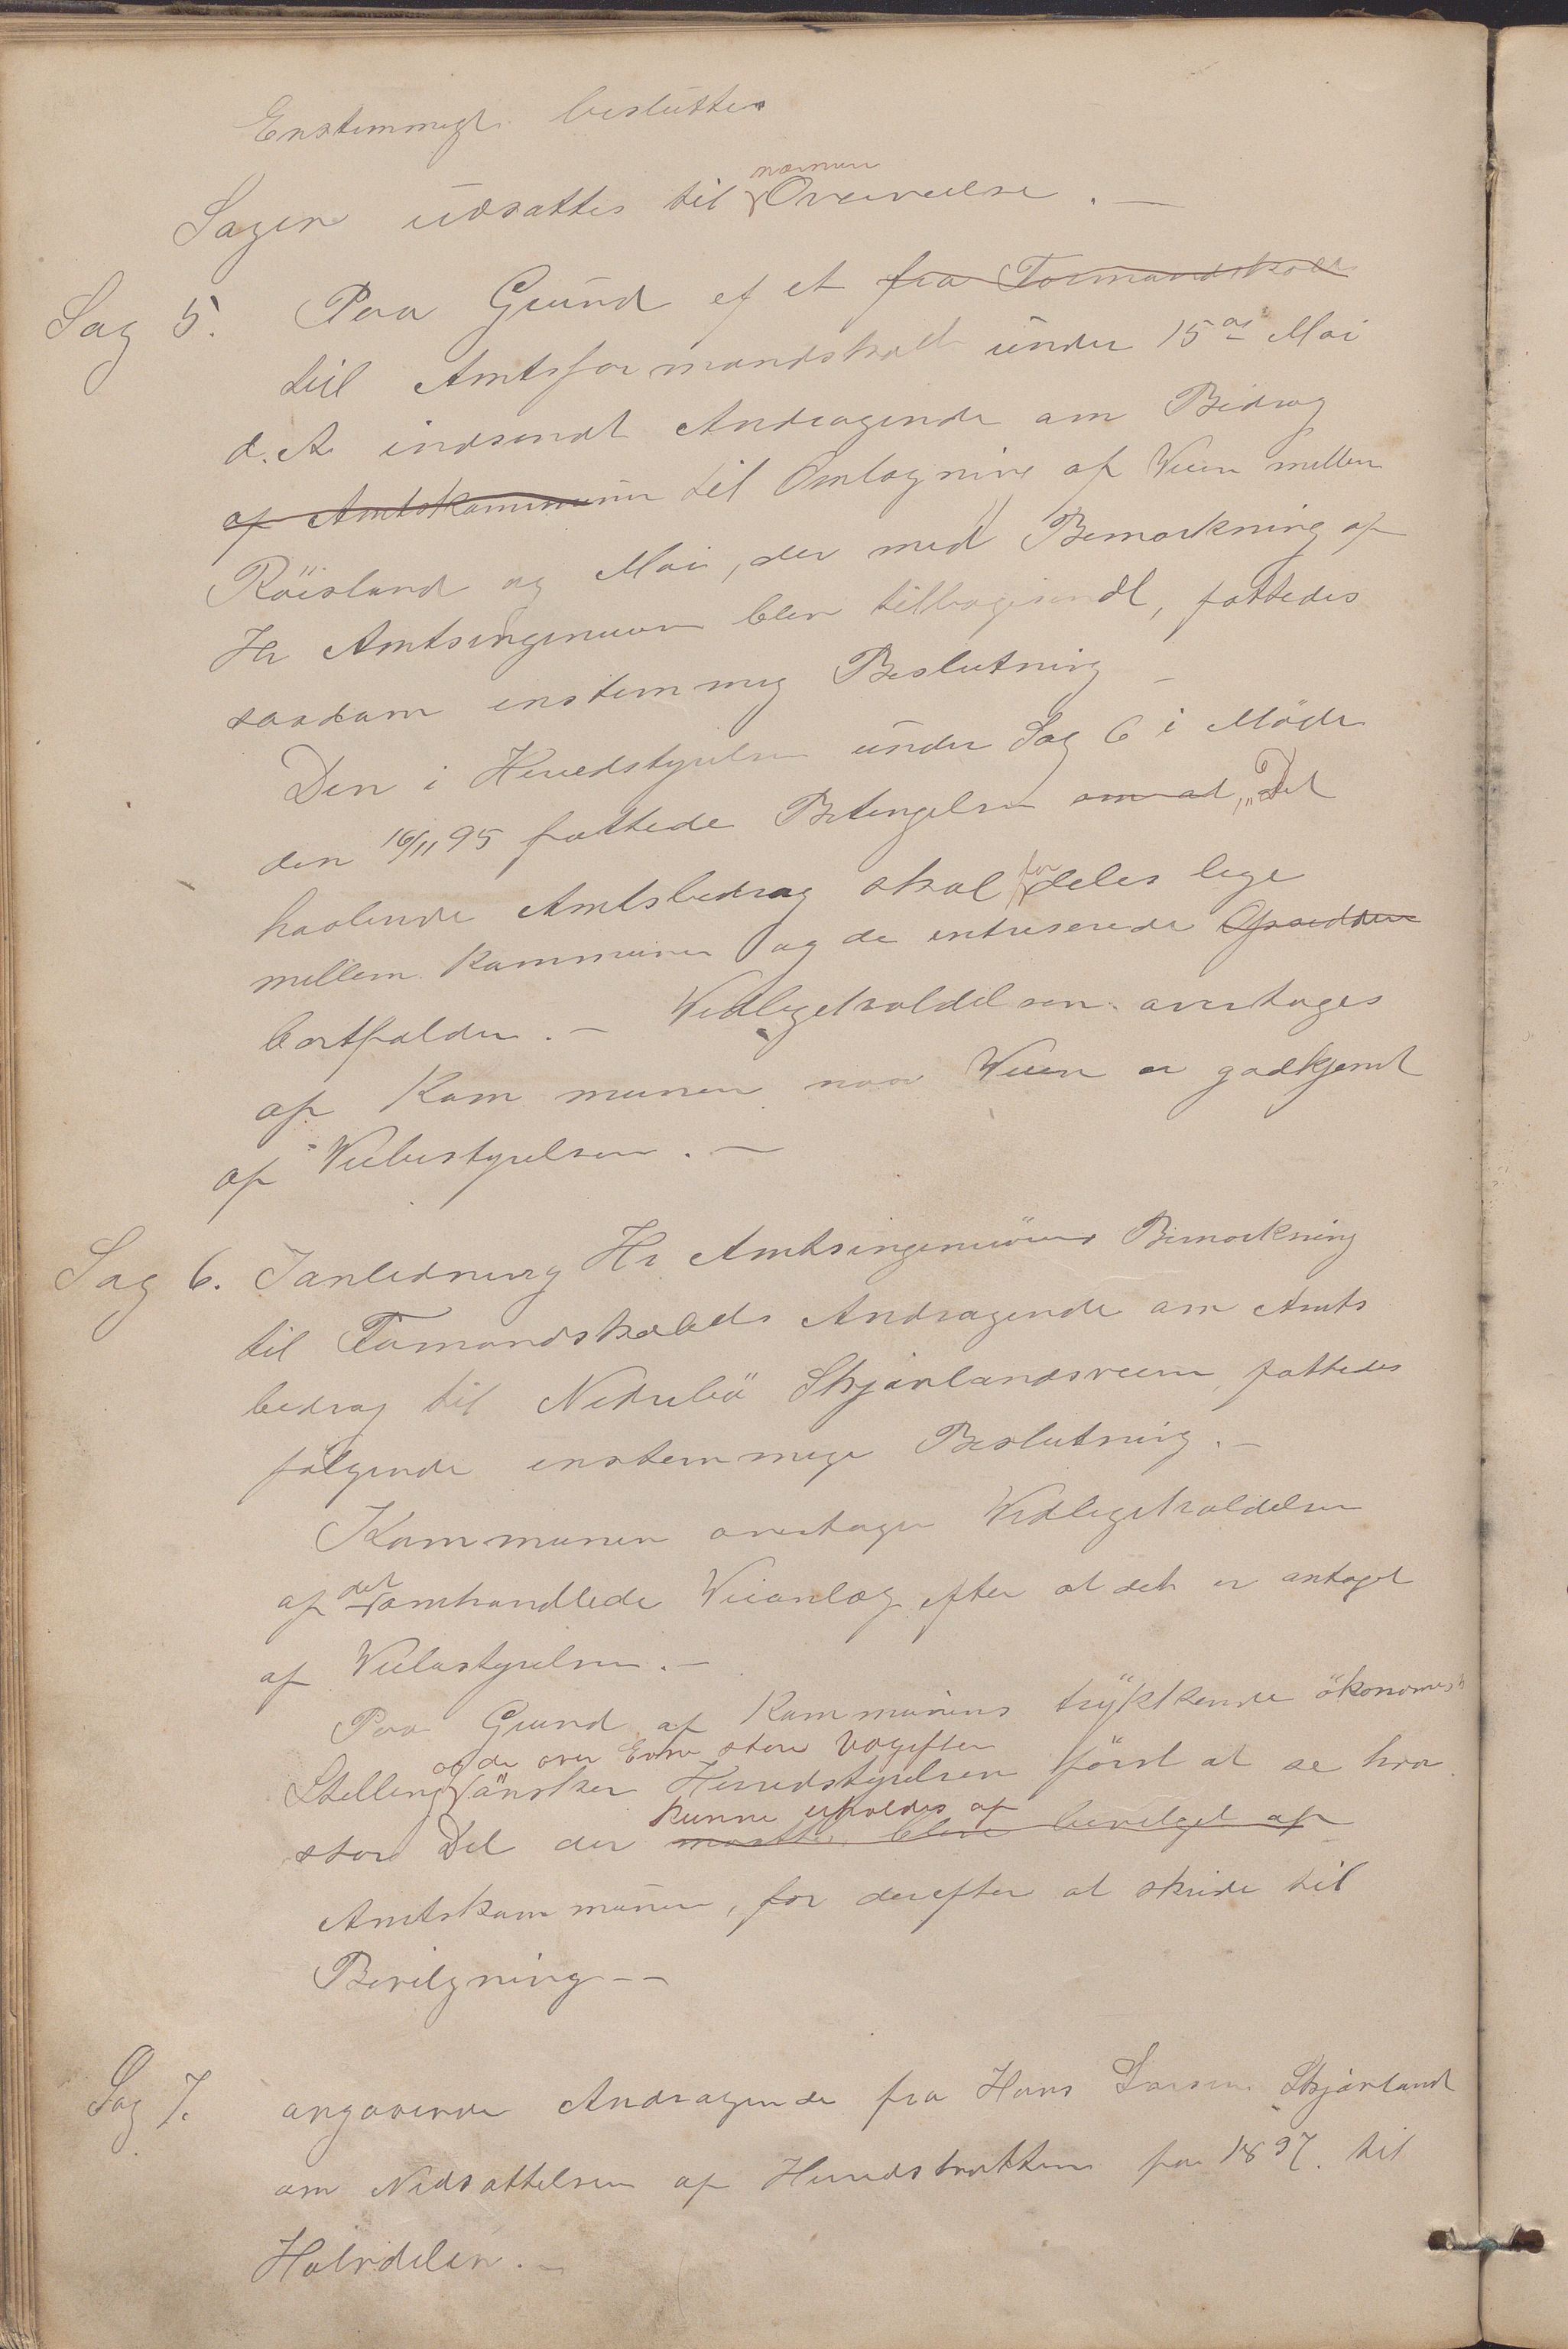 Enstemmigt besluttes
Sagen udsættes til nærmere Overveielse. —
Sag 5. Paa Grund af et fra Formandskab
til Amtsformandskab under 15de Mai
d. A. indsendt Andragende om Bidrag
af Amtskommunen til Omlægning af Veien mellem
Röisland og Moi, der med Bemærkning af
Hr Amtsingeniören blev tilbagesendt, fattedes
saadan enstemmig Beslutning —
Den i Herredstyrelsen under Sag 6 i Möde
den 16/11 95 fattede Betingelse om at, "Det
haabende Amtsbidrag skal fordeles lige
mellem Kommunen og de intreserede Opsiddere
bortfalder. — Vedligeholdelsen overtages
af Kommunen naar Veien er godkjent
af Veibestyrelsen. —
Sag 6. I anledning Hr Amtsingeniörens Bemærkning
til Formandskabets Andragende om Amts
bidrag til Nedrebö Skjævlandsveien, fattedes
fölgende enstemmige Beslutning. —
Kommunen overtager Vedligeholdelsen
af det omhandlede Veianlæg efter at det er antaget
af Veibestyrelsen. —
Paa Grund af Kommunens trykkende ökonomisk
og de over Evne store Vægifter
Stelling önsker Herredstyrelsen först at se hvor
kunne erholdes af
stor Del der maatte blive bevilget af
Amtskommunen, for derefter at skride til
Bevilgning — —
Sag 7. angaaende Andragende fra Hans Larsen Skjævland
om Nedsættelsen af Herredskatten for 1897 til
Halvdelen. —